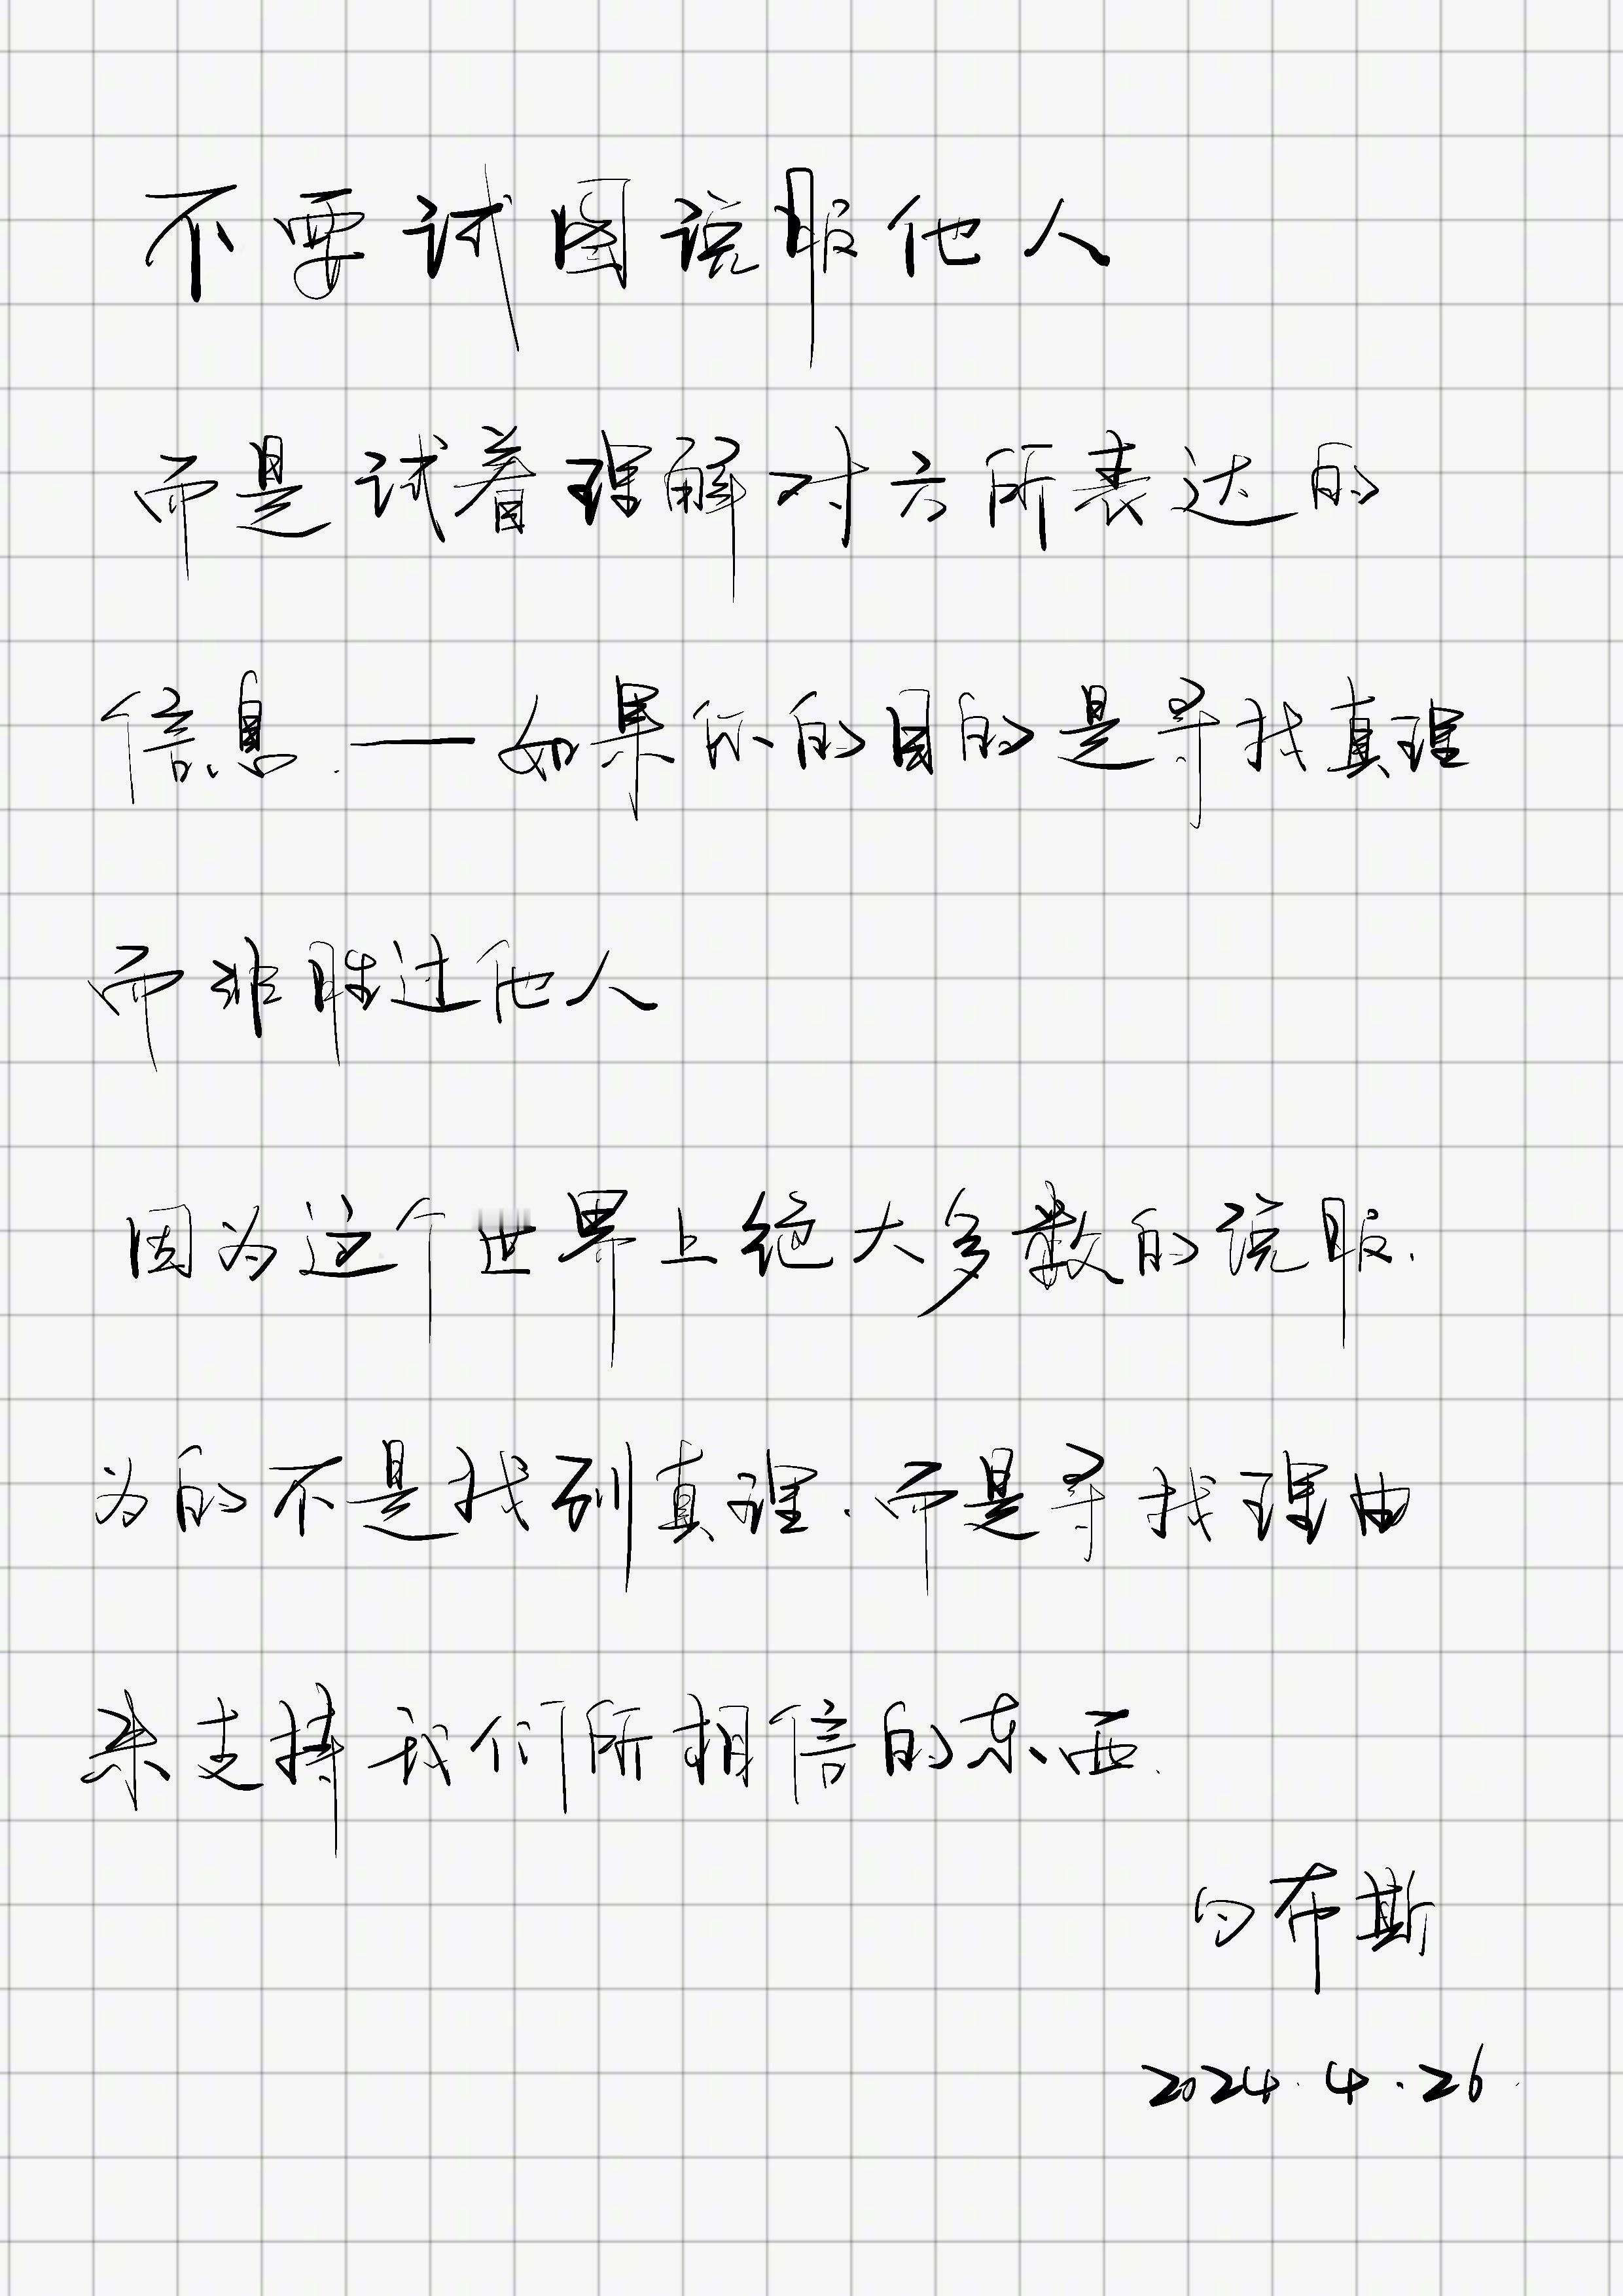 不要试图说服他人
而是试着理解对方所表达的
信息.——如果你的目的是寻找真理
而非胜过他人
因为这个世界上绝大多数的说服.
为的不是找到真理.而是寻找理由
来支持我们所相信的东西.
白布斯
2024.4.26.